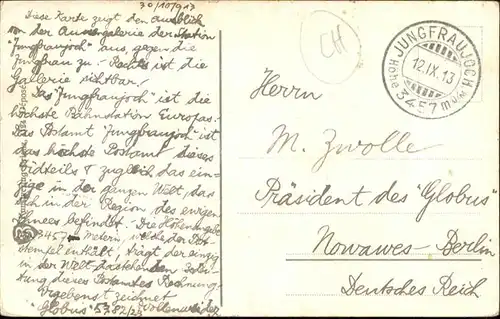 30/10/913
Diese Karte zeigt den Ausblick
von der Aussengalerie der Station
"Jungfraujoch" aus, gegen die
Jungfrau zu. Rechts ist die
Gallerie sichtbar!
Das "Jungfraujoch" ist die
höchste Bahnstation Europas.
Das Postamt "Jungfraujoch" ist
das höchste Postamt dieses
Erdteils & zugleich das ein-
zige in der ganzen Welt, das
sich in der Region des ewigen
Schnees befindet. Die Höhenangabe
3457 Metern, welche der Post-
stempel enthält, trägt der einzig
in der Welt dastehenden
dieses Postamtes Rechnung.
Ergebenst zeichnet
"Globus"
CH
JUNGFRAUJOCH
12.IX.13
Höhe 3457 m ü. M.
Herrn
M. Zwolle
Präsident des "Globus"
Nowawes-Berlin
Deutsches Reich